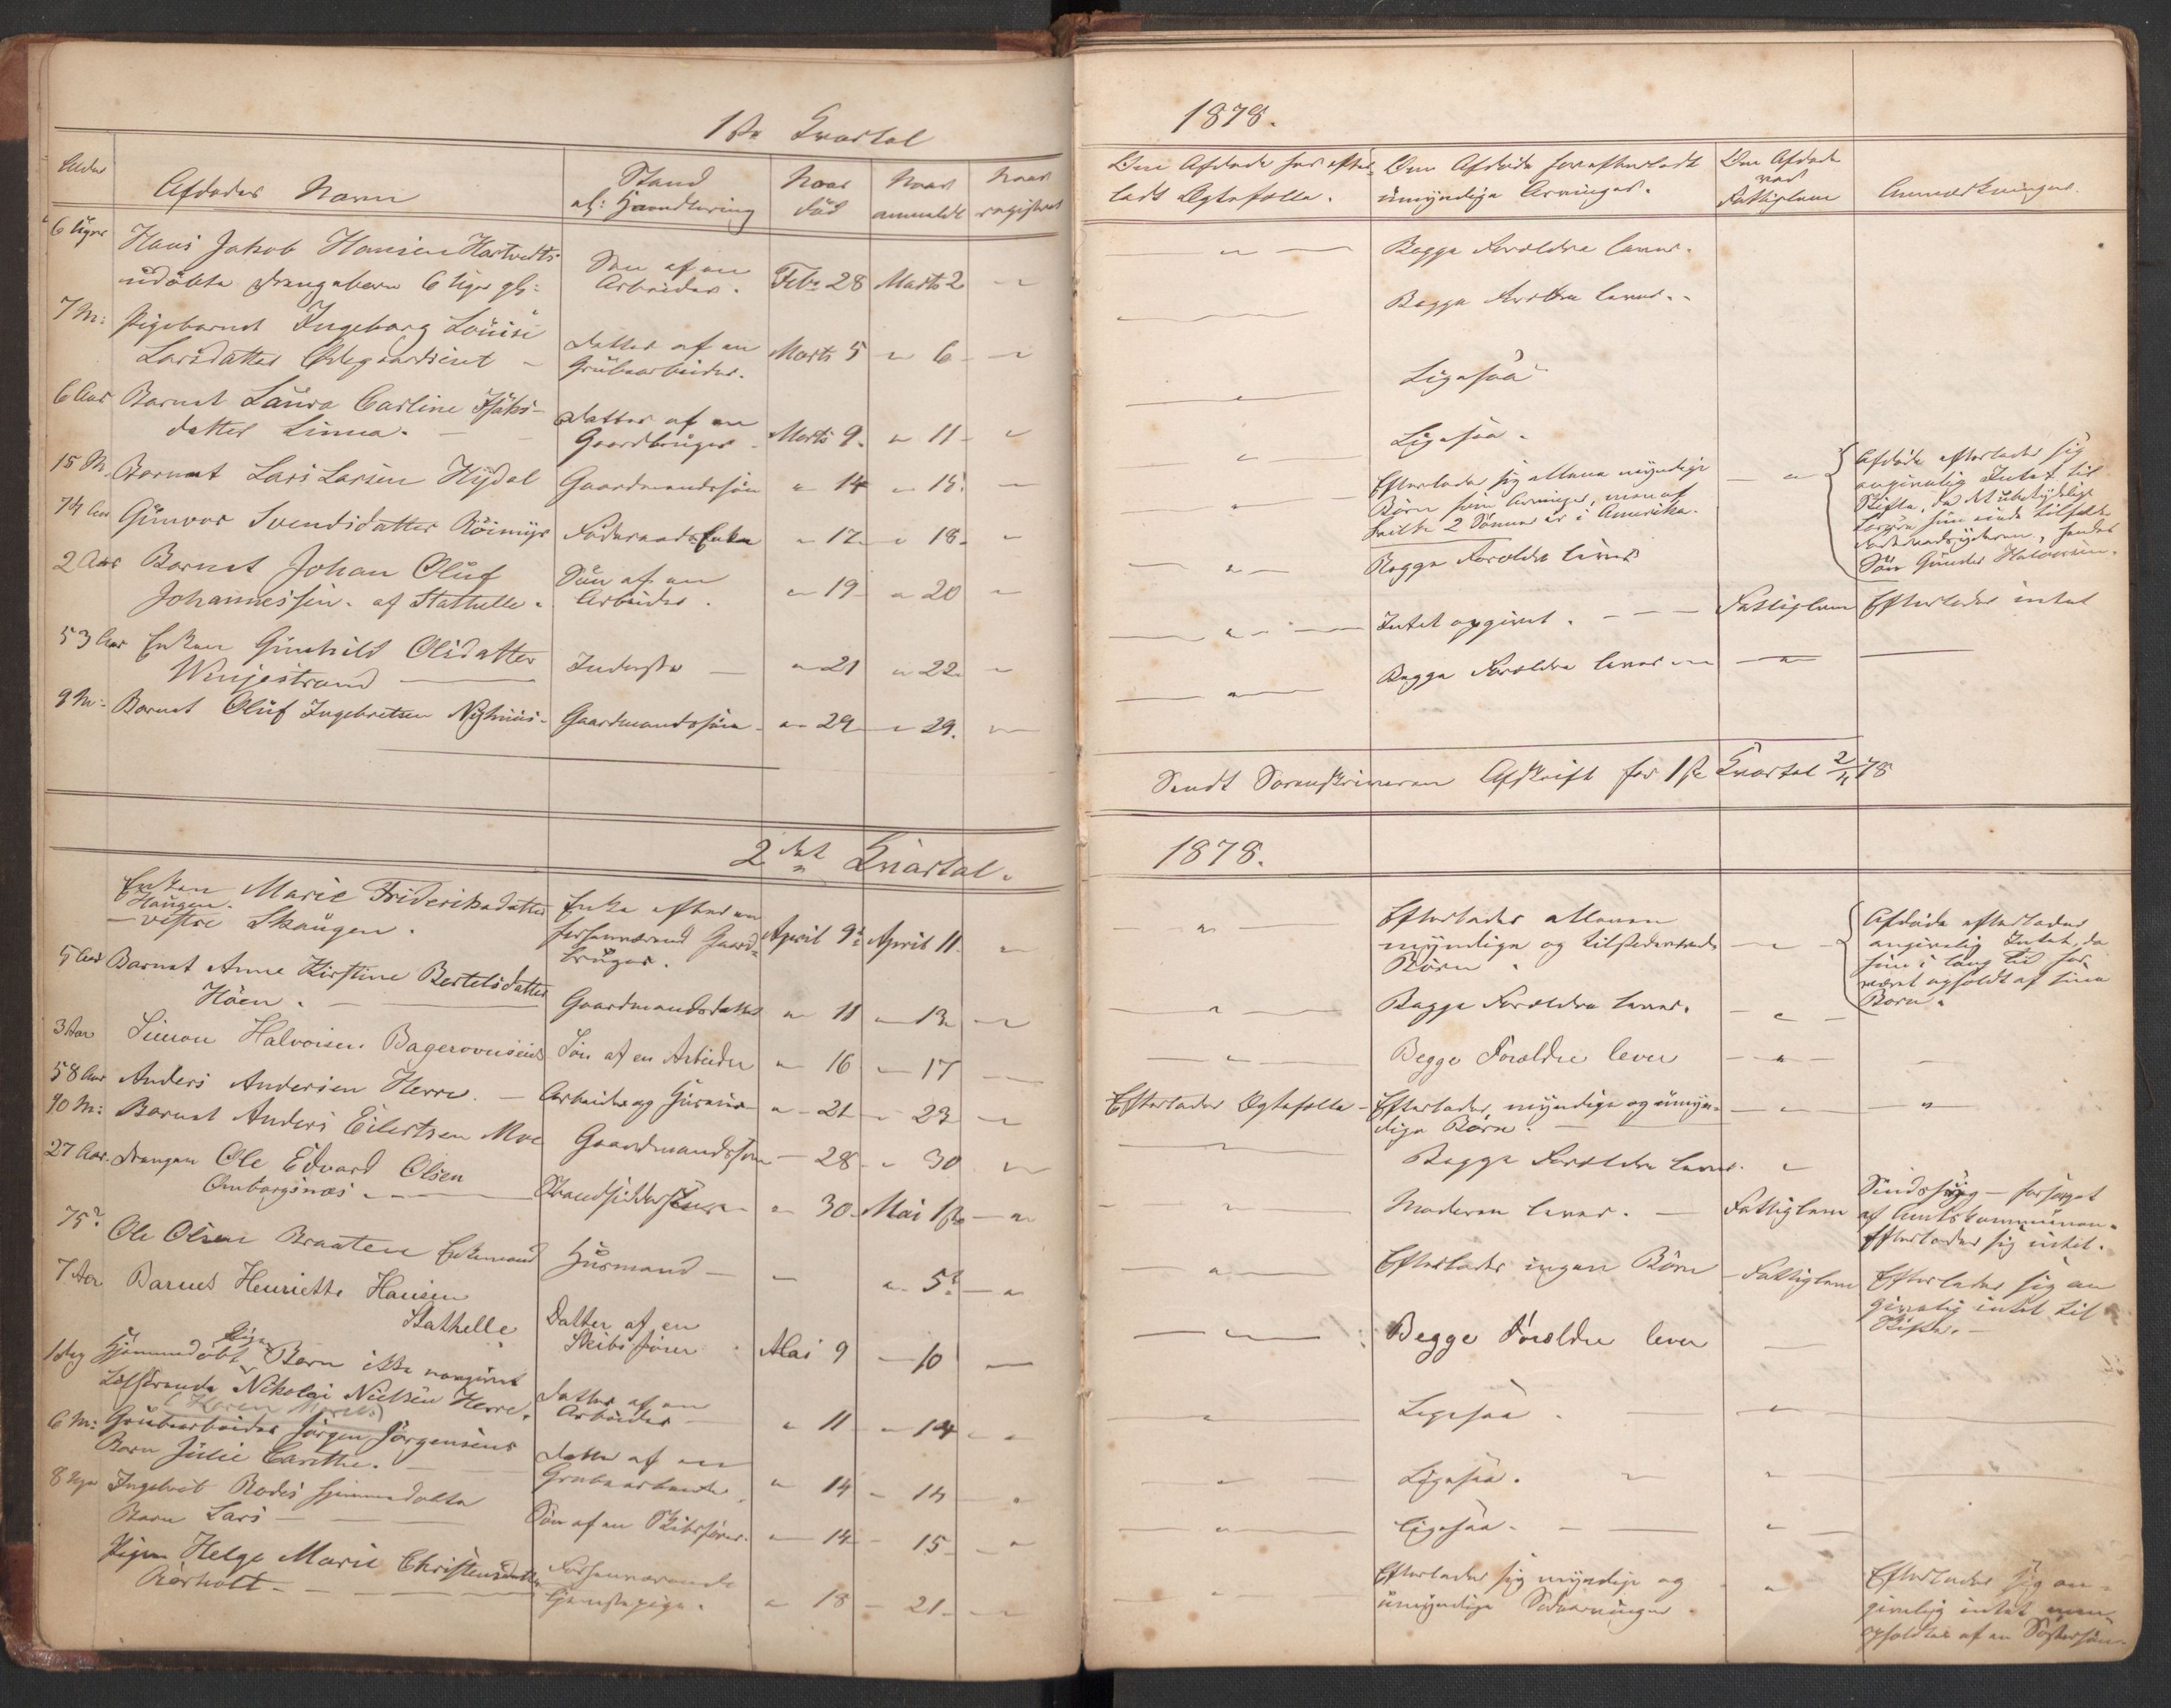 1ste Kvartal
Alder
Afdødes Navn
Stand
el: Haandtering
Naar
død
Naar
anmeldt
Naar
registreret
6 Uger
Hans Jakob Hansen Hartvedts
udöbte Drengebarn 6 Uger gl:
Søn af en
Arbeider.
Febr 28
Marts 2
7 M:
Pigebarnet Ingeborg Louise
Larsdatter
Datter af en
Grubearbeider.
Marts 5
" 6
6 Aar
Barnet Laura Carline Isaks-
datter Linnea.
Datter af en
Gaardbruger
Marts 9.
" 11
15 M.
Barnet Lars Larsen Hydal
Gaardmandssøn
" 14
" 15.
74 Aar
Gunvor Svendsdatter Röimyr
Föderaads Enke
" 17
" 18
2 Aar
Barnet Johan Oluf
Johannessen. af Stathelle.
Søn af en
Arbeider.
" 19
" 20
53 Aar
Enken Gunhild Olsdatter
Winjestrand
Inderst
" 21
" 22
9 M:
Barnet Oluf Ingebretsen Nyhuus
Gaardmandssøn
" 29
" 29.
2det Kvartal.
Enken Marie Frideriksdatter
Haugen.
vestre Skaugen.
Enke efter en
forhenværende Gaard-
bruger.
April 9de
April 11.
5 Aar
Barnet Anne Kirstine Bertelsdatter
Höen.
Gaardmandsdatter
" 11
" 13
3 Aar
Simon Halvorsen
Søn af en Arbeider
" 16
" 17
58 Aar
Anders Andersen Herre.
Arbeider og Husmand
" 21
" 23
10 M:
Barnet Anders Eilertsen Moe
Gaardmandssøn
28
" 30
27 Aar.
Drengen Ole Edvard Olsen
Omborgsnæs
Strandsidder
" 30
Mai 1ste
75?
Ole Olsen Braaten Enkemand
Husmand
" 5te
7 Aar
Barnet Henriette Hansen
Stathelle
Datter af en
Skibsfører
Mai 9
10
1 dag
Pige
Hjemmedöbt Barn ikke navngivet
Nikolai Nielsen Herre.
(Karen Marie)
Datter af en
Arbeider
" 11
" 14
6 M:
Grubearbeider Jörgen Jörgensens
Barn Julie Carethe.
Datter af en
Grubearbeider
" 14
14
8 Uger
Ingebret Rodes hjemmedøbte
Barn Lars
Søn af en Skibsfører.
14
15
Pigen Helge Marie Christensdatter
Rörholt
Forhenværende
Tjenestepige.
" 18
21
1878.
Om Afdøde har efter-
ladt Ægtefælle.
Om Afdøde har efterladt
umyndige Arvinger.
Om Afdøde
var
Fattiglem
Anmærkninger.
Begge Forældre lever.
Begge Forældre lever.
Ligesaa
Ligesaa.
Efterlader sig allene myndige
Børn som Arvinger, men af
hvilke 2 Sønner er i Amerika.
Afdøde efterlader sig
angivelig Intet til
Skifte, da det ubetydelige
Søn Gunder Halvorsen.
Begge Forældre lever
Intet opgivet.
Fattiglem
Efterlader intet
Begge Forældre lever
Sendt Sorenskriveren Afskrift for 1ste Kvartal 2/4 78
1878.
Efterlader allene
myndige og tilstedeværende
Børn.
Afdøde efterlader
angivelig Intet, da
hun i lang Tid har
været opholdt af sine
Børn.
Begge Forældre lever.
Begge Forældre lever
Efterlader Ægtefælle
Efterlader myndige og umyn-
dige Børn.
Begge Forældre lever.
Moderen lever.
Fattiglem
Sindssyg – forsørget
af Amtskommunen.
Efterlader sig intet.
Efterlader ingen Børn
Fattiglem
Efterlader sig an-
givelig intet til
Skifte.
Begge Forældre lever
Ligesaa.
Ligesaa.
Ligesaa.
Efterlader sig myndige og
umyndige Sidearvinger
Efterlader sig an-
givelig intet men
opholdtes af en Søstersøn.